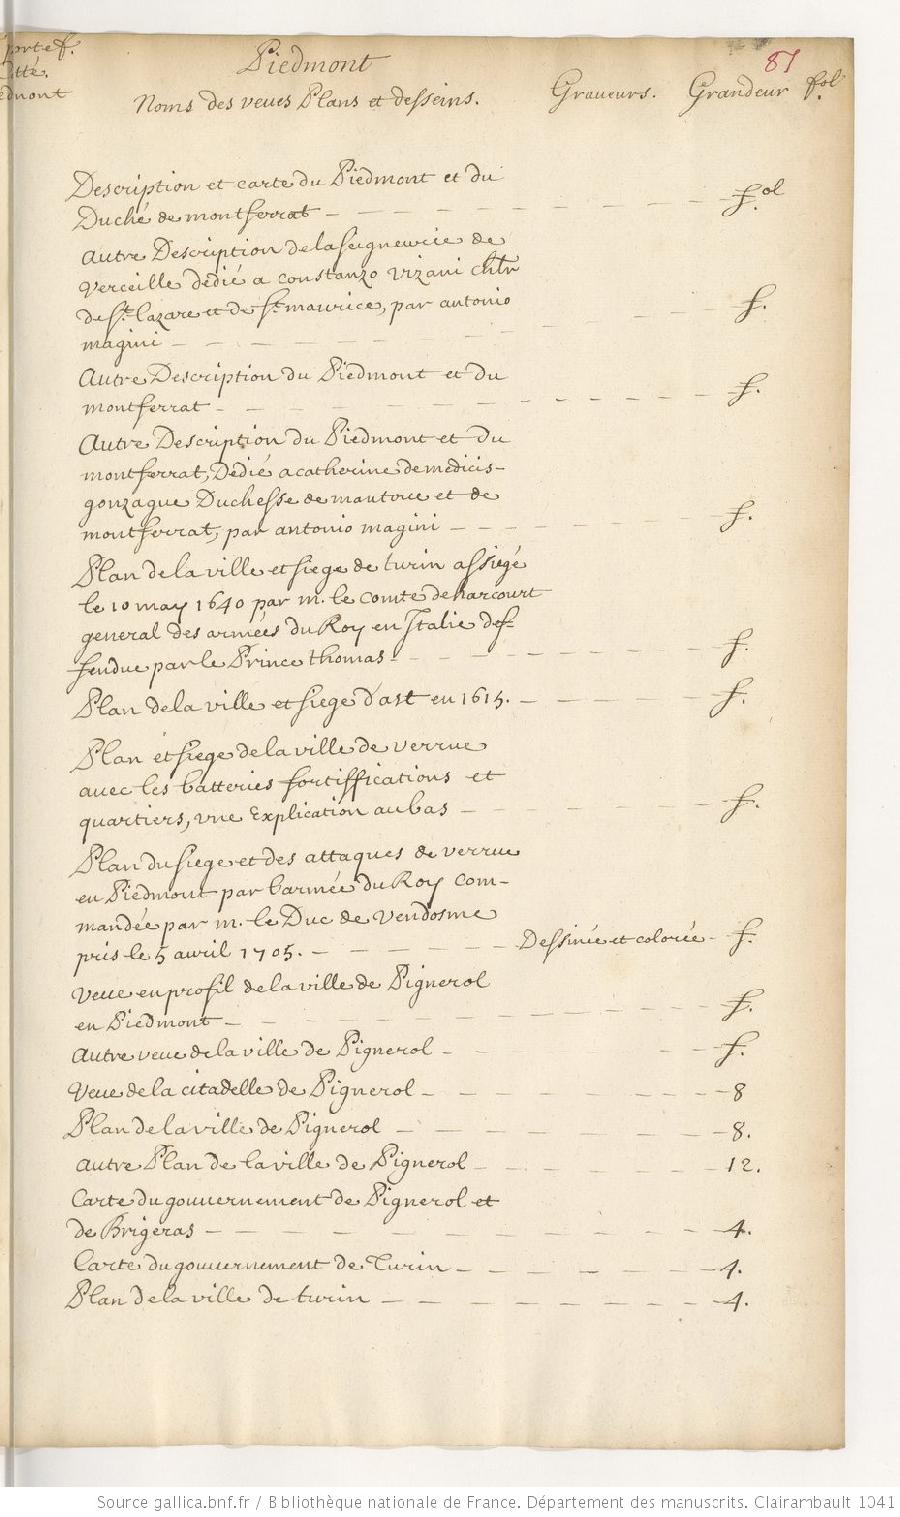 portef.
Piedmont
87
Noms des veues Plans et desseins. Graveurs. Grandeur fol.
Description et carte du Piedmont et du
Duché de montferrat - f.ol
autre Description de la seigneurie de
Verceille dédié a constanzo vizani chlr
de St. lazare et de St. maurice, par antonio
magini - f.
autre Description du Piedmont et du
montferrat - f.
autre Description du Piedmont et du
montferrat, Dédié a catherine de medicis-
gonzague Duchesse de mantoue et de
montferrat, par antonio magini - f.
Plan de la ville et siege de turin assiegé
le 10 may 1640 par m. le comte de harcourt
general des armées du Roy en Italie def-
fendue par le Prince thomas - f.
Plan de la ville et siege d'ast en 1615. - f.
Plan et siege de la ville de verrue
avec les batteries fortiffications et
quartiers, vne Explication au bas - f.
Plan du siege et des attaques de verrue
en Piedmont par l'armée du Roy com-
mandée par m. le Duc de Vendosme
pris le 5 avril 1705. - Dessinée et colorée - f.
Veue en profil de la ville de Pignerol
en Piedmont - f.
autre veue de la ville de Pignerol - f.
Veue de la citadelle de Pignerol - 8
Plan de la ville de Pignerol - 8.
autre Plan de la ville de Pignerol - 12.
Carte du gouuernement de Pignerol et
de Brigeras - 4.
Carte du gouuernement de Turin - 4.
Plan de la ville de turin - 4.
Source gallica.bnf.fr / Bibliothèque nationale de France. Département des manuscrits. Clairambault 1041